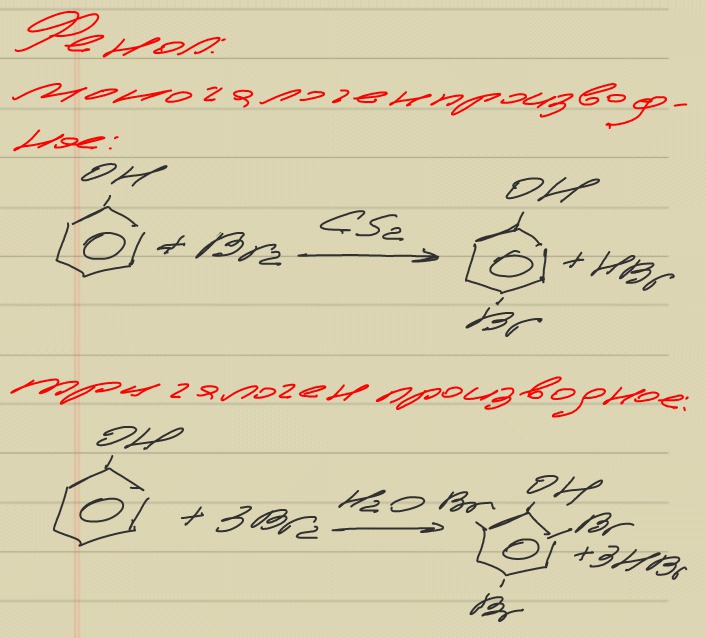 Фенол:
моногалогенпроизвод-
ное:
OH OH
+ Br₂ CS₂ + HBr
Br
тригалогенпроизводное:
OH OH
+ 3Br₂ H₂O Br Br + 3HBr
Br